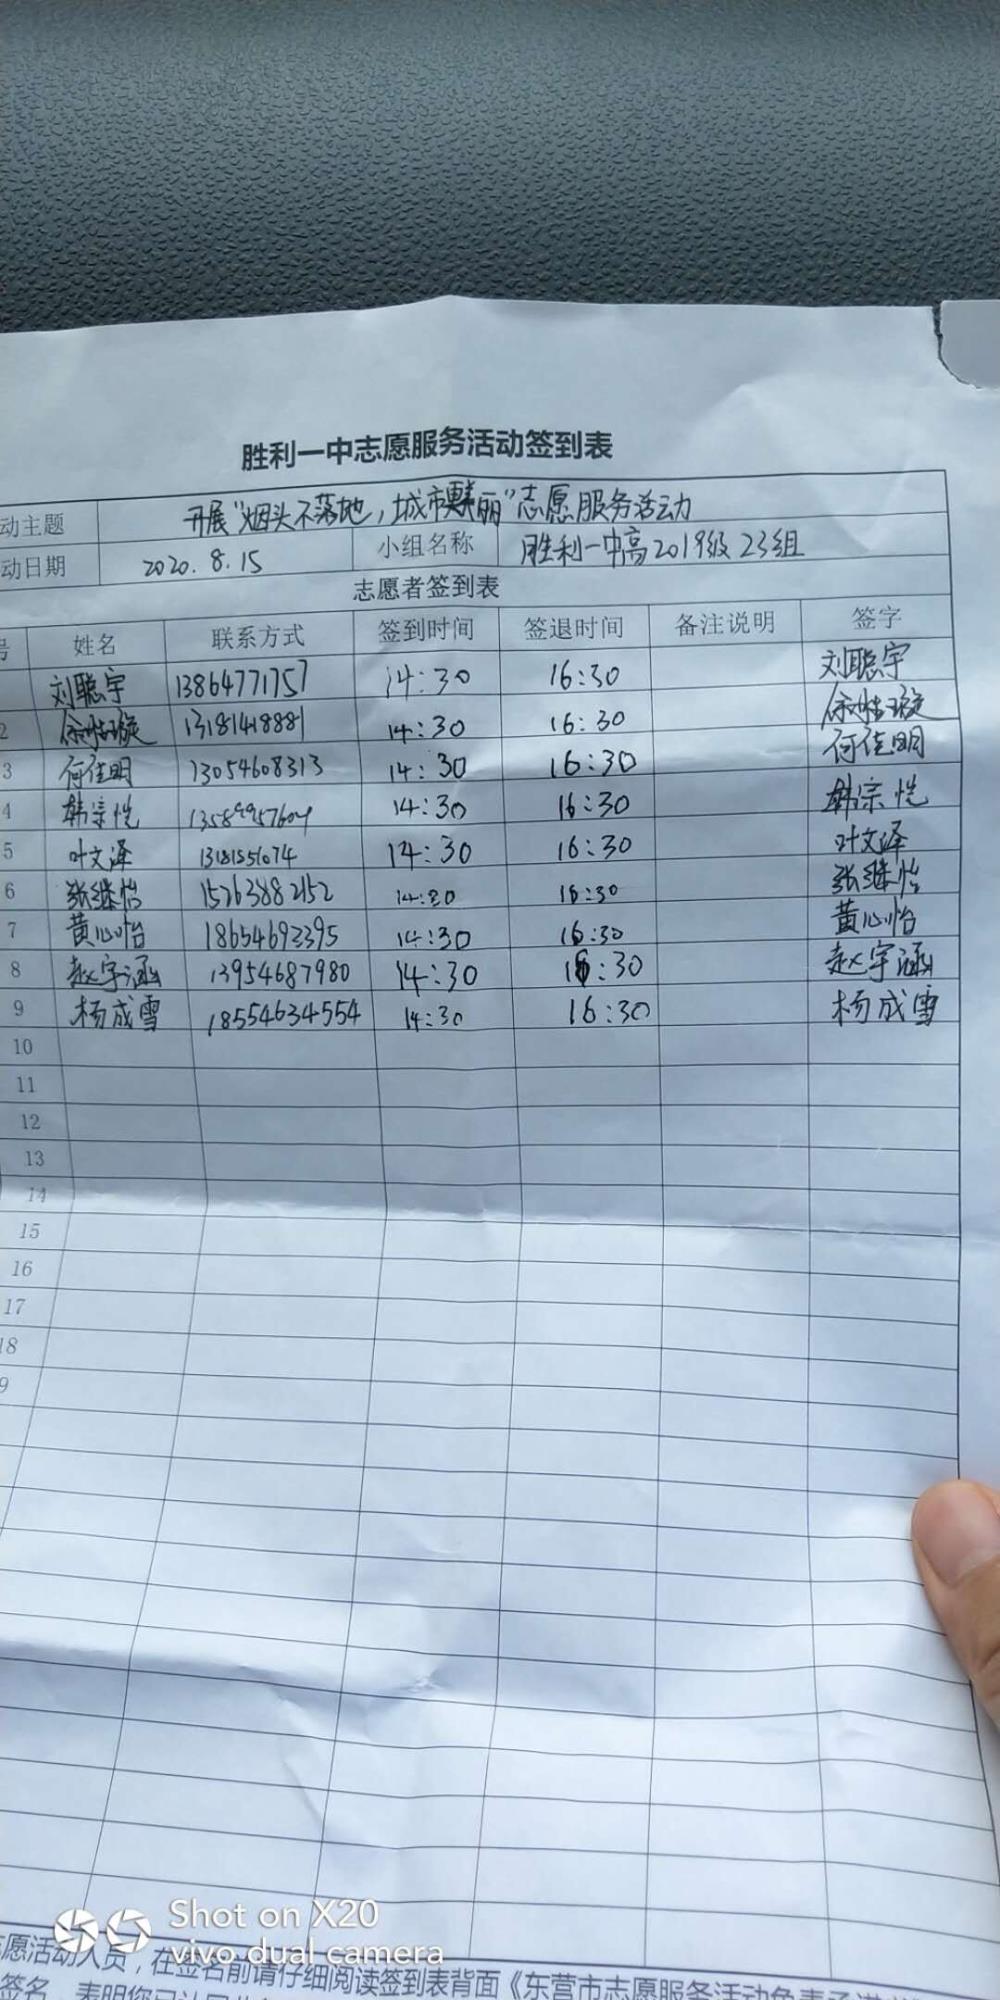 胜利一中志愿服务活动签到表
动主题 开展"烟头不落地,城市更美丽"志愿服务活动
动日期 2020.8.15 小组名称 胜利一中高2019级23组
志愿者签到表
号 姓名 联系方式 签到时间 签退时间 备注说明 签字
刘聪宇 13864771757 14:30 16:30 刘聪宇
2 13181418881 14:30 16:30
3 何佳明 13054608313 14:30 16:30 何佳明
4 韩宗恺 13589957604 14:30 16:30 韩宗恺
5 叶文泽 13181551074 14:30 16:30 叶文泽
6 张继怡 15763882152 14:30 16:30 张继怡
7 黄心怡 18654692395 14:30 16:30 黄心怡
8 赵宇涵 13954687980 14:30 16:30 赵宇涵
9 杨成雪 18554634554 14:30 16:30 杨成雪
10
11
12
13
14
15
16
17
18
9
Shot on X20
vivo dual camera
愿活动人员,在签名前请仔细阅读签到表背面《东营市志愿服务活动免责承诺
签名,表明您已